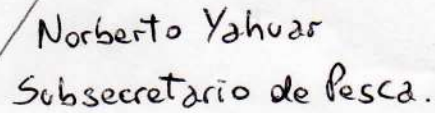 Norberto Yahuar
Subsecretario de Pesca.